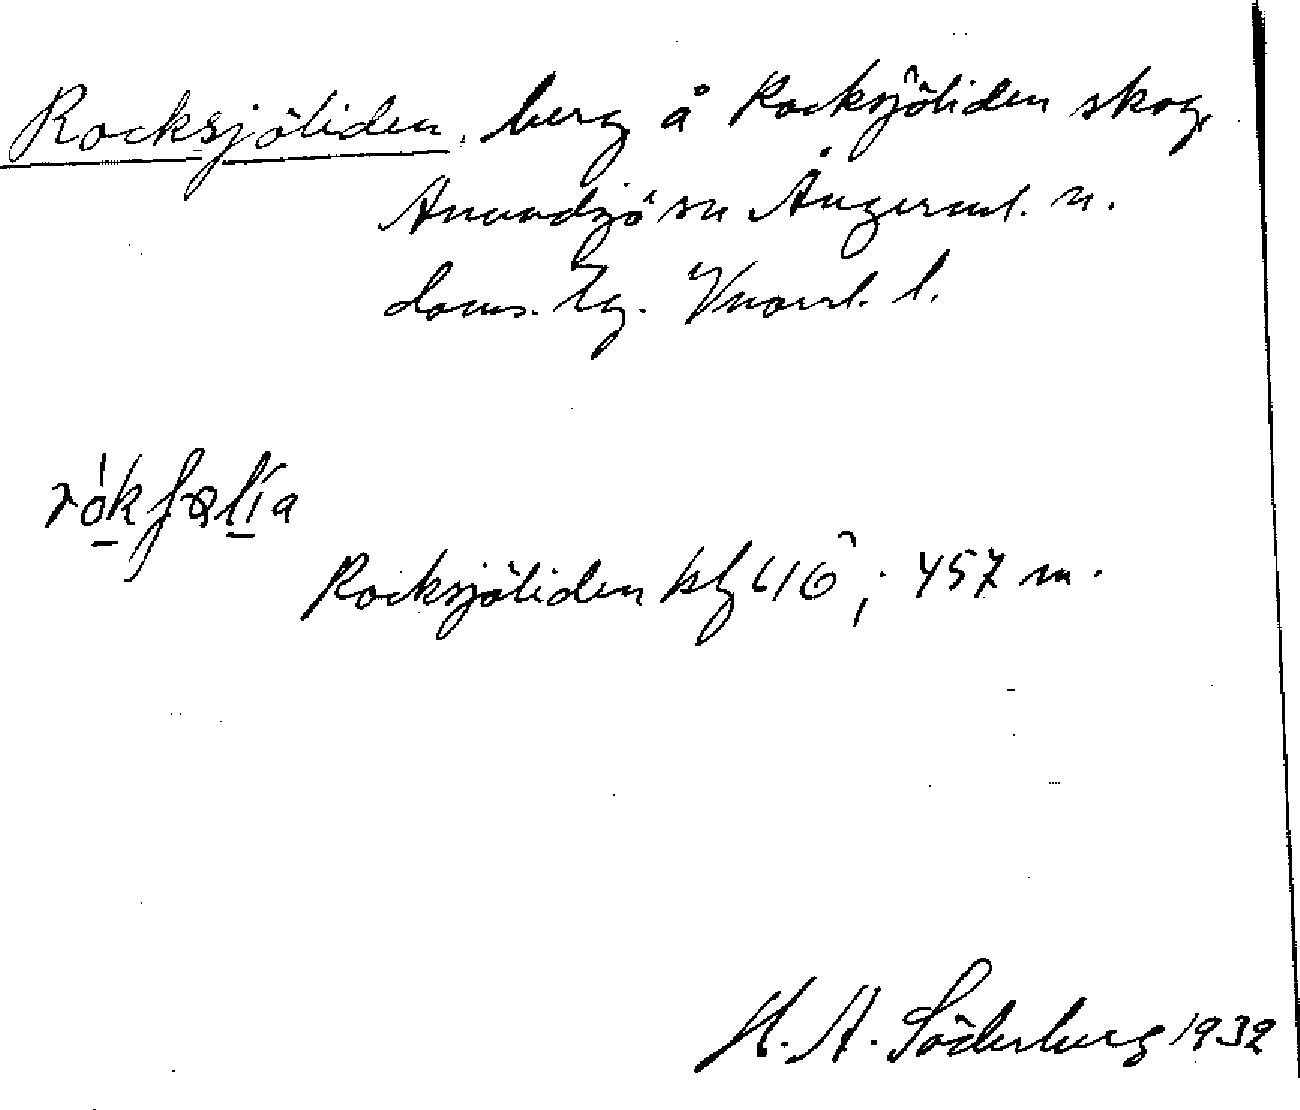 Rocksjöliden, berg å Rocksjöliden skog,
Anundsjö sn Ångerml. n.
doms. tg. Vnorrl. l.
Rocksjöliden kf 416; 457 m.
H. A. Söderberg 1932